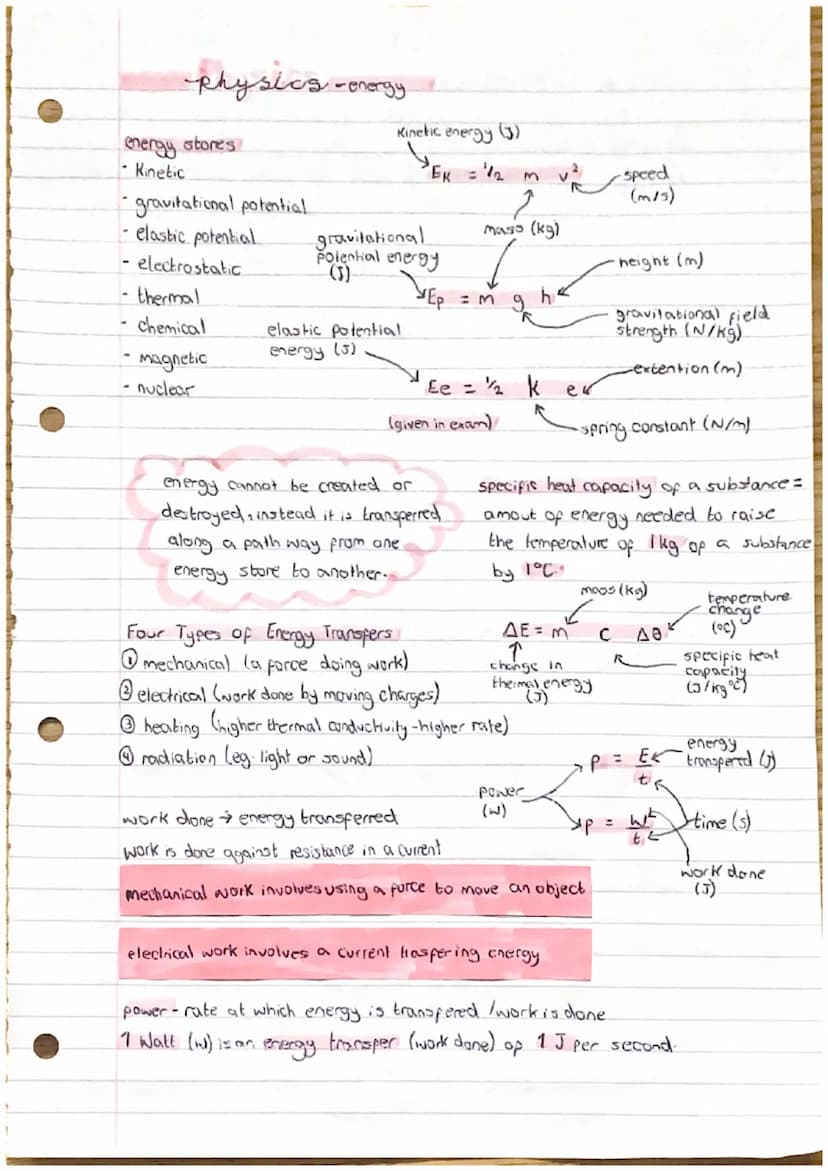 physics - energy
energy stores
- Kinetic
- gravitational potential
- elastic potential
- electrostatic
- thermal
- chemical
- magnetic
- nuclear
Kinetic energy (J)
EK = 1/2 m v²
speed
(m/s)
mass (kg)
gravitational
potential energy
(J)
Ep = m g h
height (m)
gravitational field
strength (N/kg)
elastic potential
energy (J)
Ee = 1/2 k e
extention (m)
(given in exam)
spring constant (N/m)
energy cannot be created or
destroyed, instead it is transferred
along a path way from one
energy store to another.
specific heat capacity of a substance =
amout of energy needed to raise
the temperature of 1kg of a substance
by 1°C.
mass (kg)
temperature
change
(°C)
ΔE = m c Δθ
change in
thermal energy
(J)
specific heat
capacity
(J/kg°C)
Four Types of Energy Transfers
① mechanical (a force doing work)
② electrical (work done by moving charges)
③ heating (higher thermal conductivity - higher rate)
④ radiation (eg. light or sound)
power
(W)
P = E/t
energy
transfered (J)
P = W/t
time (s)
work done
(J)
work done → energy transferred
work is done against resistance in a current
mechanical work involves using a force to move an object
electrical work involves a current trasfering energy
power - rate at which energy is transfered / work is done
1 Watt (W) is an energy transfer (work done) of 1 J per second.